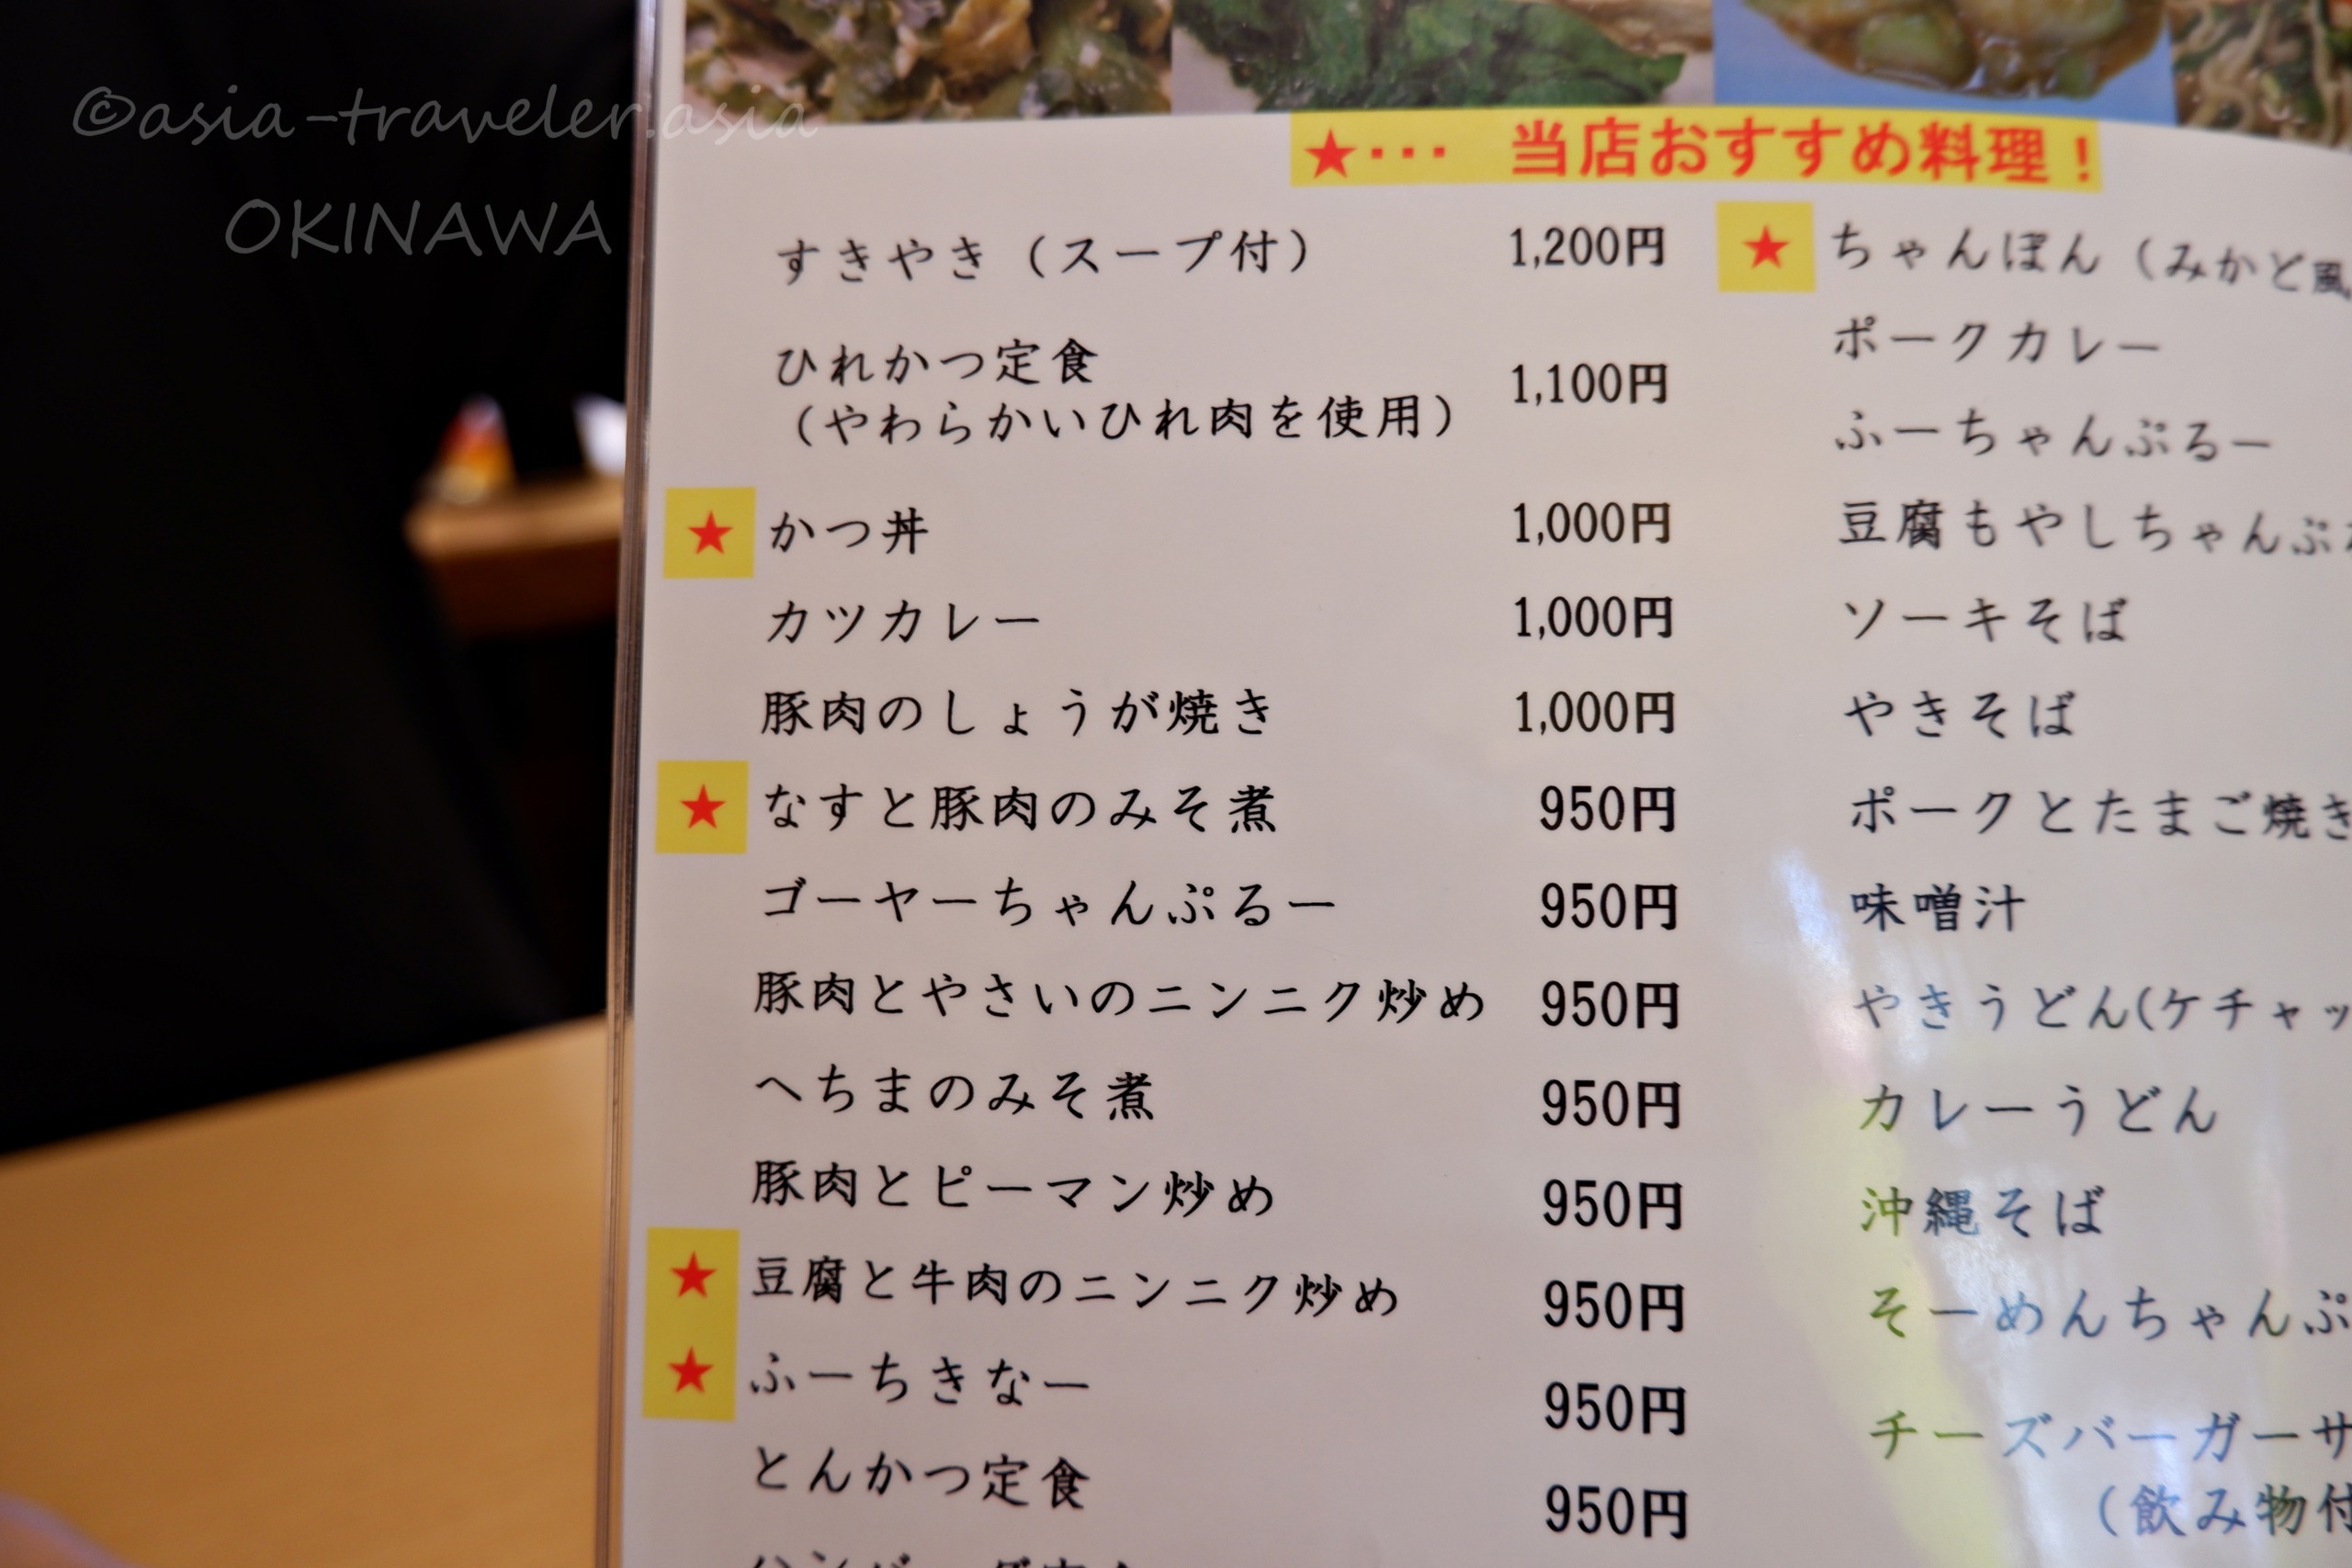 ©asia-traveler.asia
OKINAWA
★･･･ 当店おすすめ料理！
すきやき（スープ付） 1,200円
ひれかつ定食
（やわらかいひれ肉を使用） 1,100円
★ かつ丼 1,000円
カツカレー 1,000円
豚肉のしょうが焼き 1,000円
★ なすと豚肉のみそ煮 950円
ゴーヤーちゃんぷるー 950円
豚肉とやさいのニンニク炒め 950円
へちまのみそ煮 950円
豚肉とピーマン炒め 950円
★ 豆腐と牛肉のニンニク炒め 950円
★ ふーちきなー 950円
とんかつ定食 950円
★ ちゃんぽん（みかど風
ポークカレー
ふーちゃんぷるー
豆腐もやしちゃんぷ
ソーキそば
やきそば
ポークとたまご焼き
味噌汁
やきうどん(ケチャッ
カレーうどん
沖縄そば
そーめんちゃんぷ
チーズバーガーサ
（飲み物付